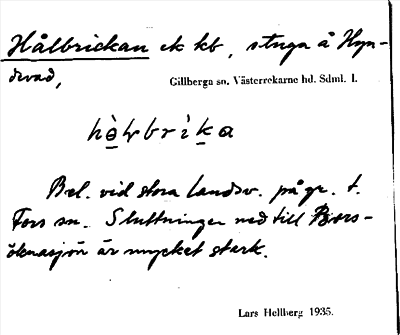 Hålbrickan ek kb, stuga å Hyn-
devad,
Gillberga sn. Västerrekarne hd. Sdml. l.
Bel. vid stora landsv. på gr. t.
Fors sn. Sluttningen ned till Bors-
öknasjön är mycket stark.
Lars Hellberg 1935.